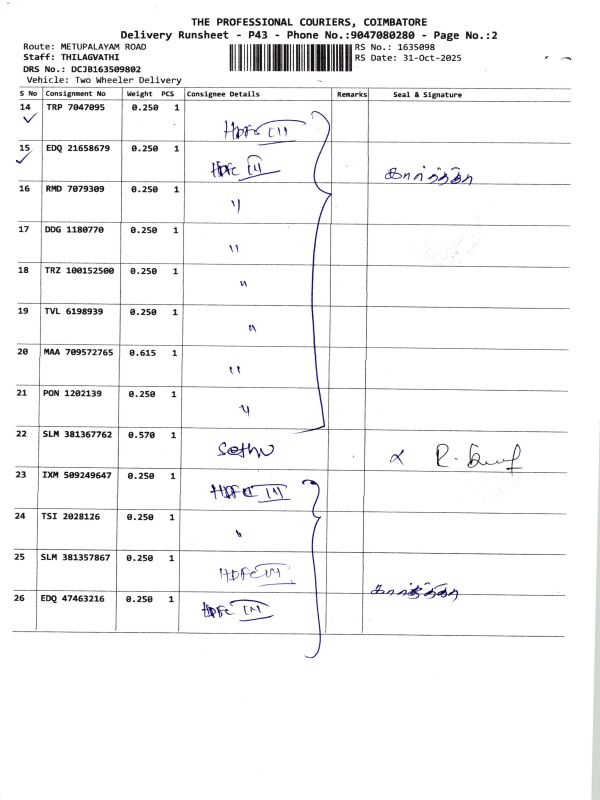 THE PROFESSIONAL COURIERS, COIMBATORE
Delivery Runsheet - P43 - Phone No.:9047080280 - Page No.:2
Route: METUPALAYAM ROAD RS No.: 1635098
Staff: THILAGVATHI RS Date: 31-Oct-2025
DRS No.: DCJB163509802
Vehicle: Two Wheeler Delivery
S No Consignment No Weight PCS Consignee Details Remarks Seal & Signature
14 TRP 7047095 0.250 1
HDFC
15 EDQ 21658679 0.250 1
HDFC கார்த்திகா
16 RMD 7079309 0.250 1
"
17 DDG 1180770 0.250 1
"
18 TRZ 100152500 0.250 1
"
19 TVL 6198939 0.250 1
"
20 MAA 709572765 0.615 1
"
21 PON 1202139 0.250 1
"
22 SLM 381367762 0.570 1
Sethu
23 IXM 509249647 0.250 1
HDFC
24 TSI 2028126 0.250 1
"
25 SLM 381357867 0.250 1
HDFC கார்த்திகா
26 EDQ 47463216 0.250 1
HDFC